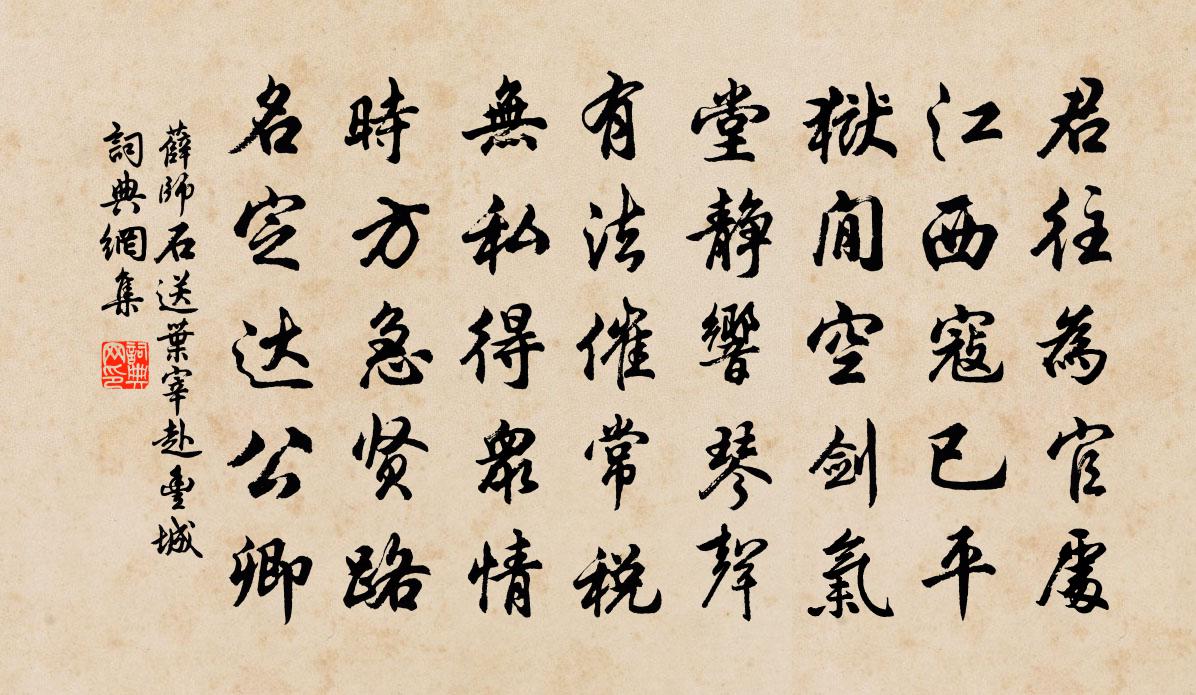 君往為官處
江西寇已平
獄閒空剑氣
堂靜響琴聲
有法催常税
無私得眾情
時方急贤路
名定达公卿
薛師石送葉宰赴豊城
詞典網集
詞典网印